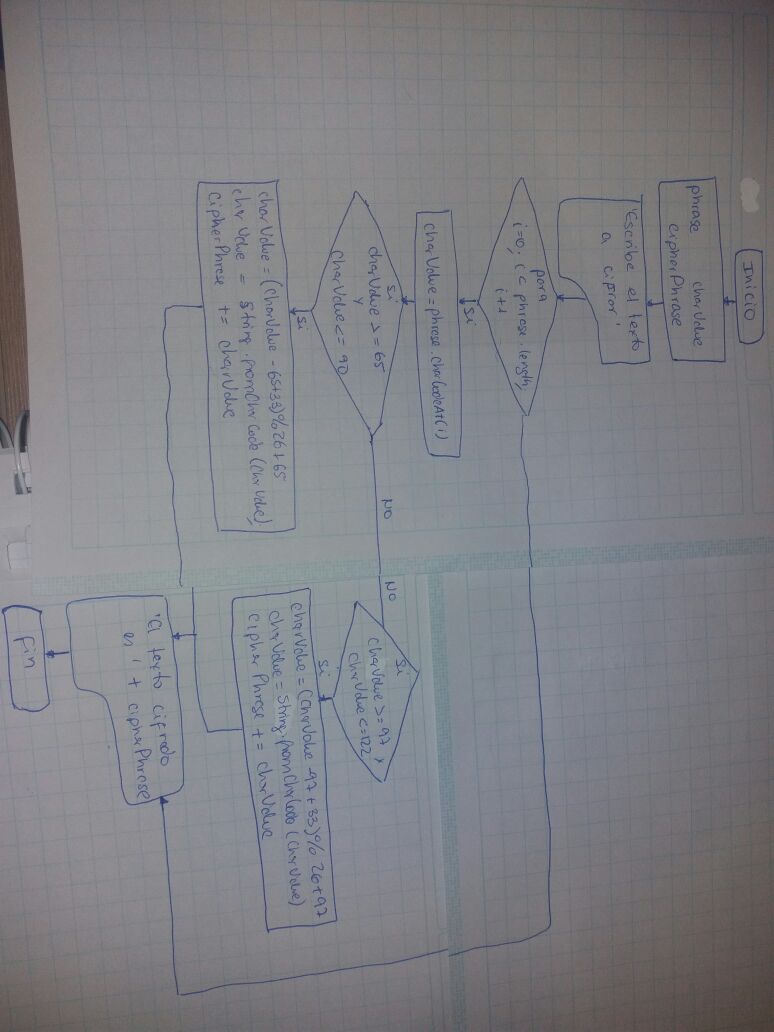 Inicio
phrase charValue
cipherPhrase
'Escribe el texto
a cifrar'
para
i=0; i < phrase.length;
i+1
Si
charValue = phrase.charCodeAt(i)
Si
charValue >= 65
y
charValue <= 90
NO
NO
Si
charValue >= 97 y
charValue <= 122
Si
charValue = (charValue - 65+33)%26+65
charValue = String.fromCharCode (CharValue)
cipherPhrase += charValue
Si
charValue = (CharValue -97 +33)% 26+97
charValue = String.fromCharCode (CharValue)
cipherPhrase += charValue
'El texto cifrado
es ' + cipherPhrase
Fin